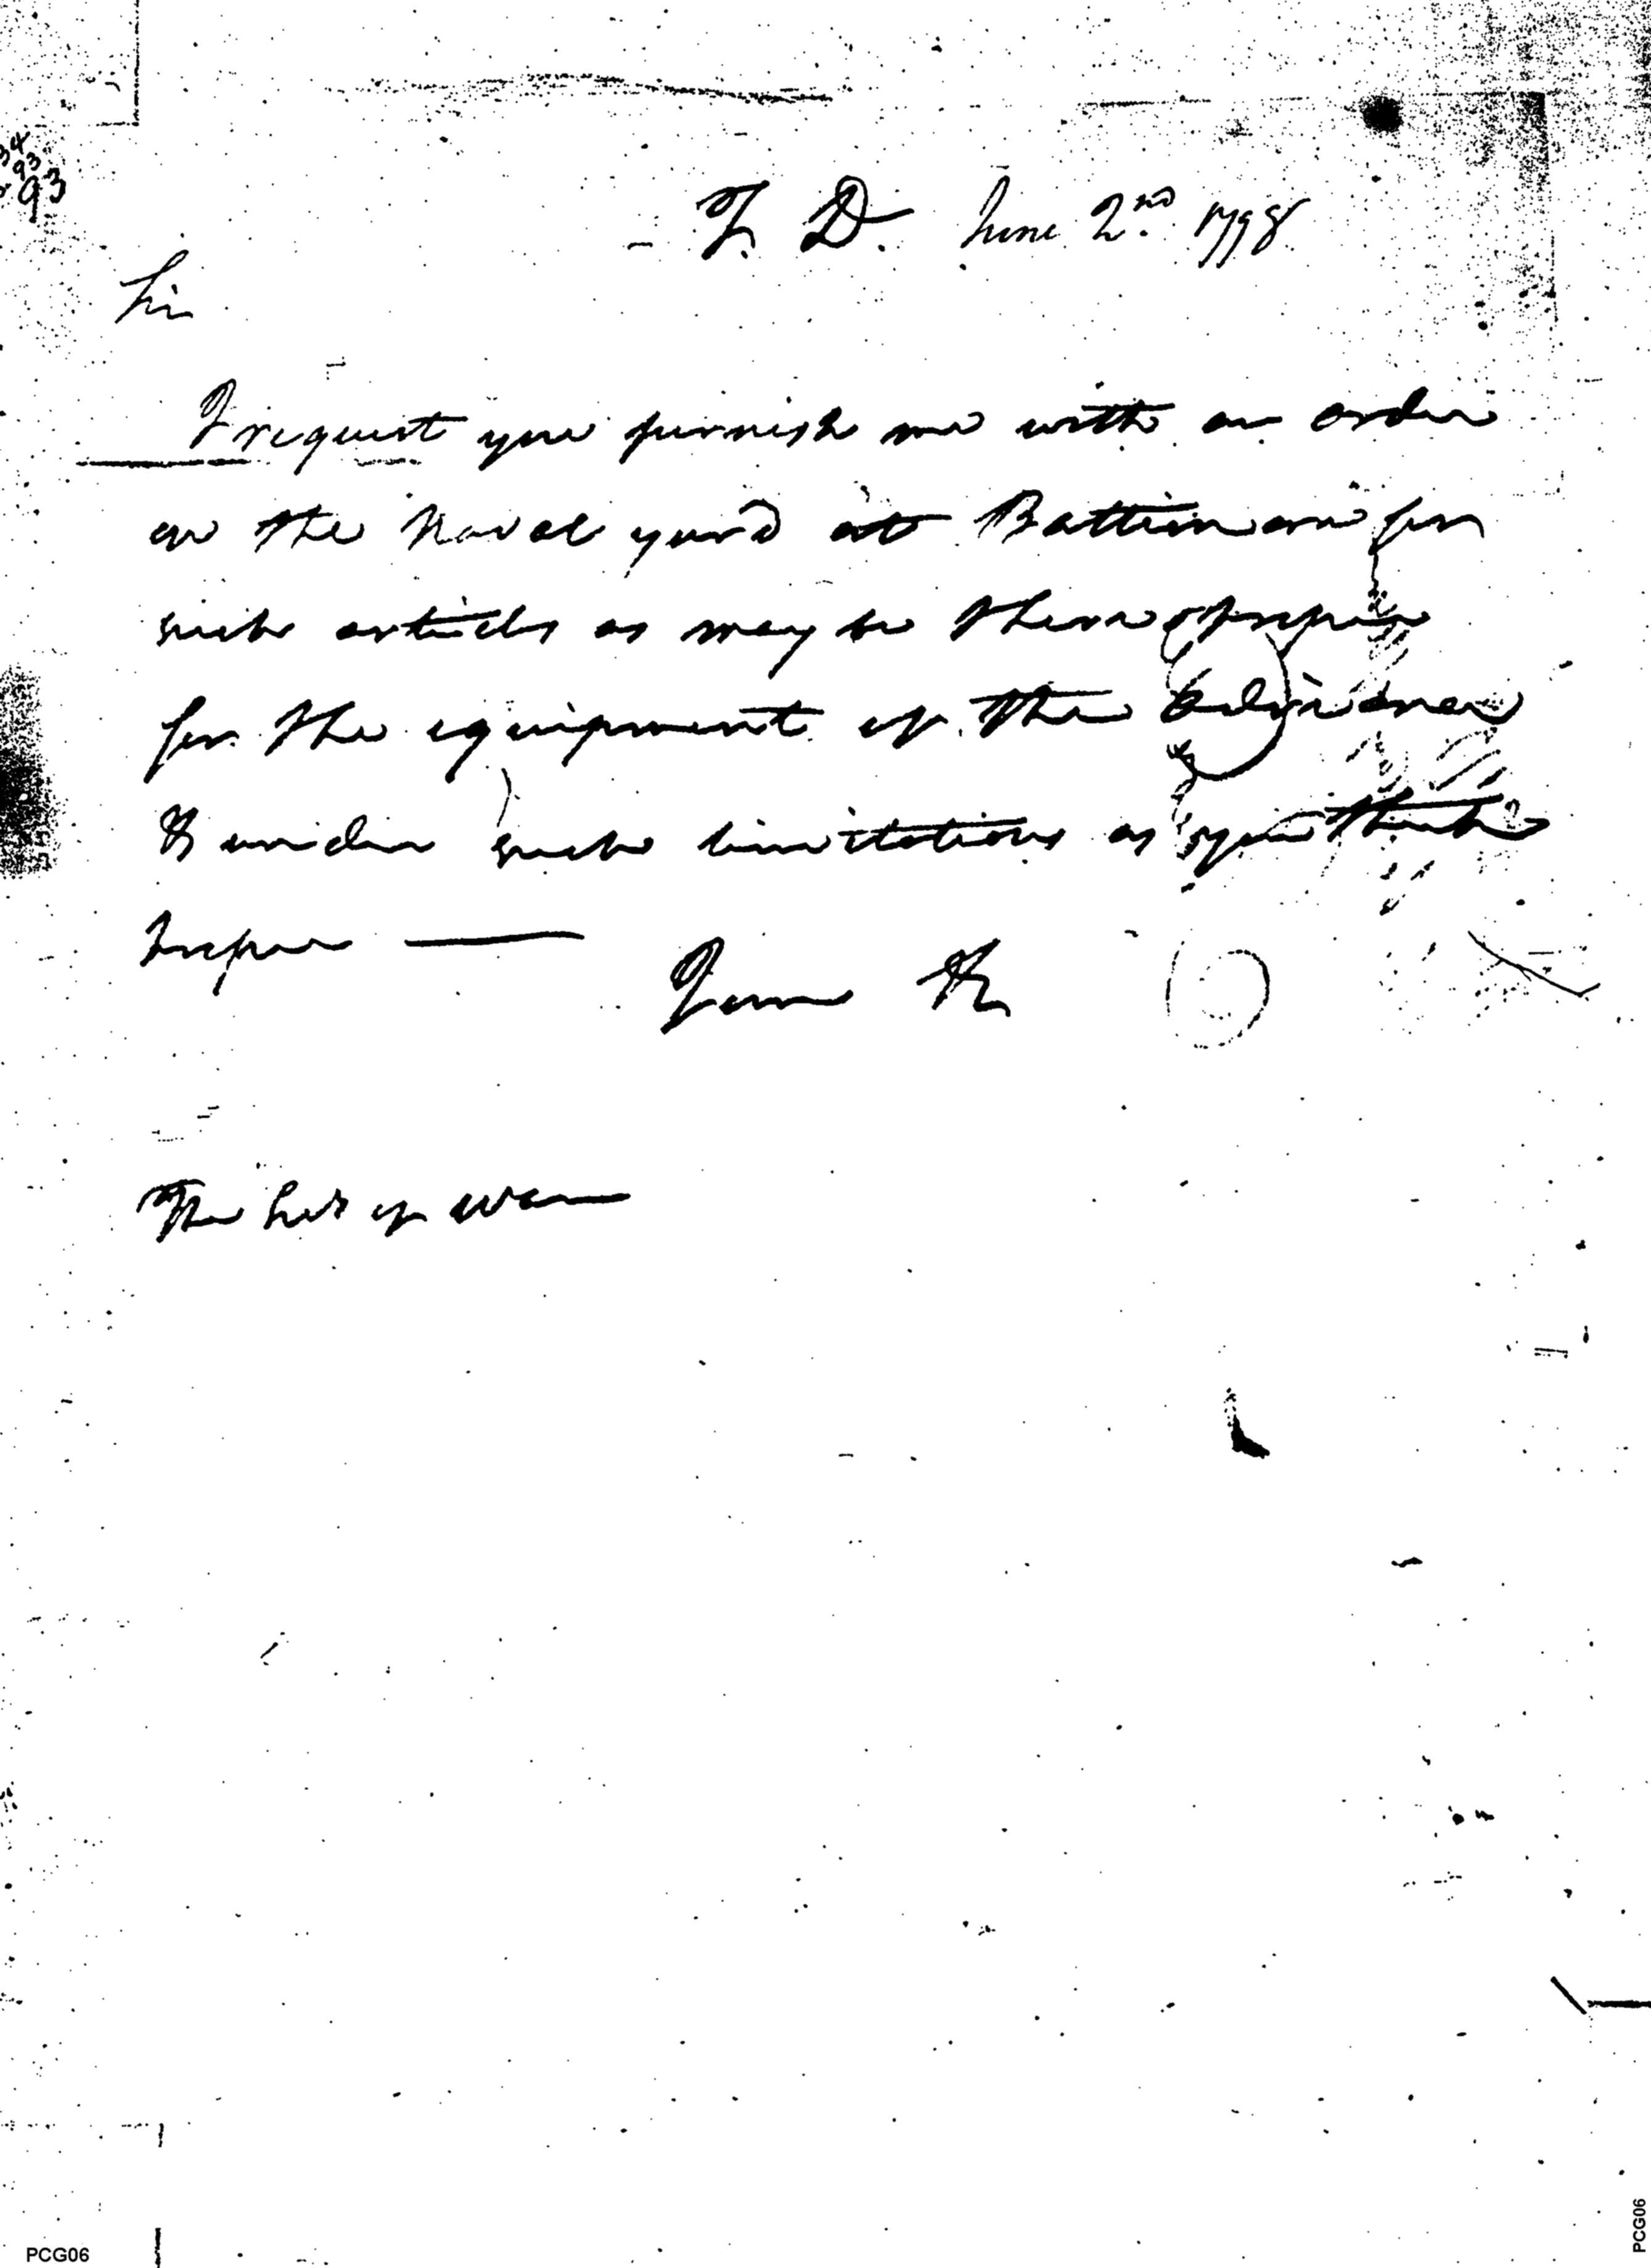 34
93
93
T. D. June 2nd 1798
Sir
I request you furnish me with an order
on the Naval yard at Baltimore for
such articles as may be there & proper
for the equipment of the
& under such limitations as you think
proper —
Yours &c
The Sec of War
PCG06
PCG06